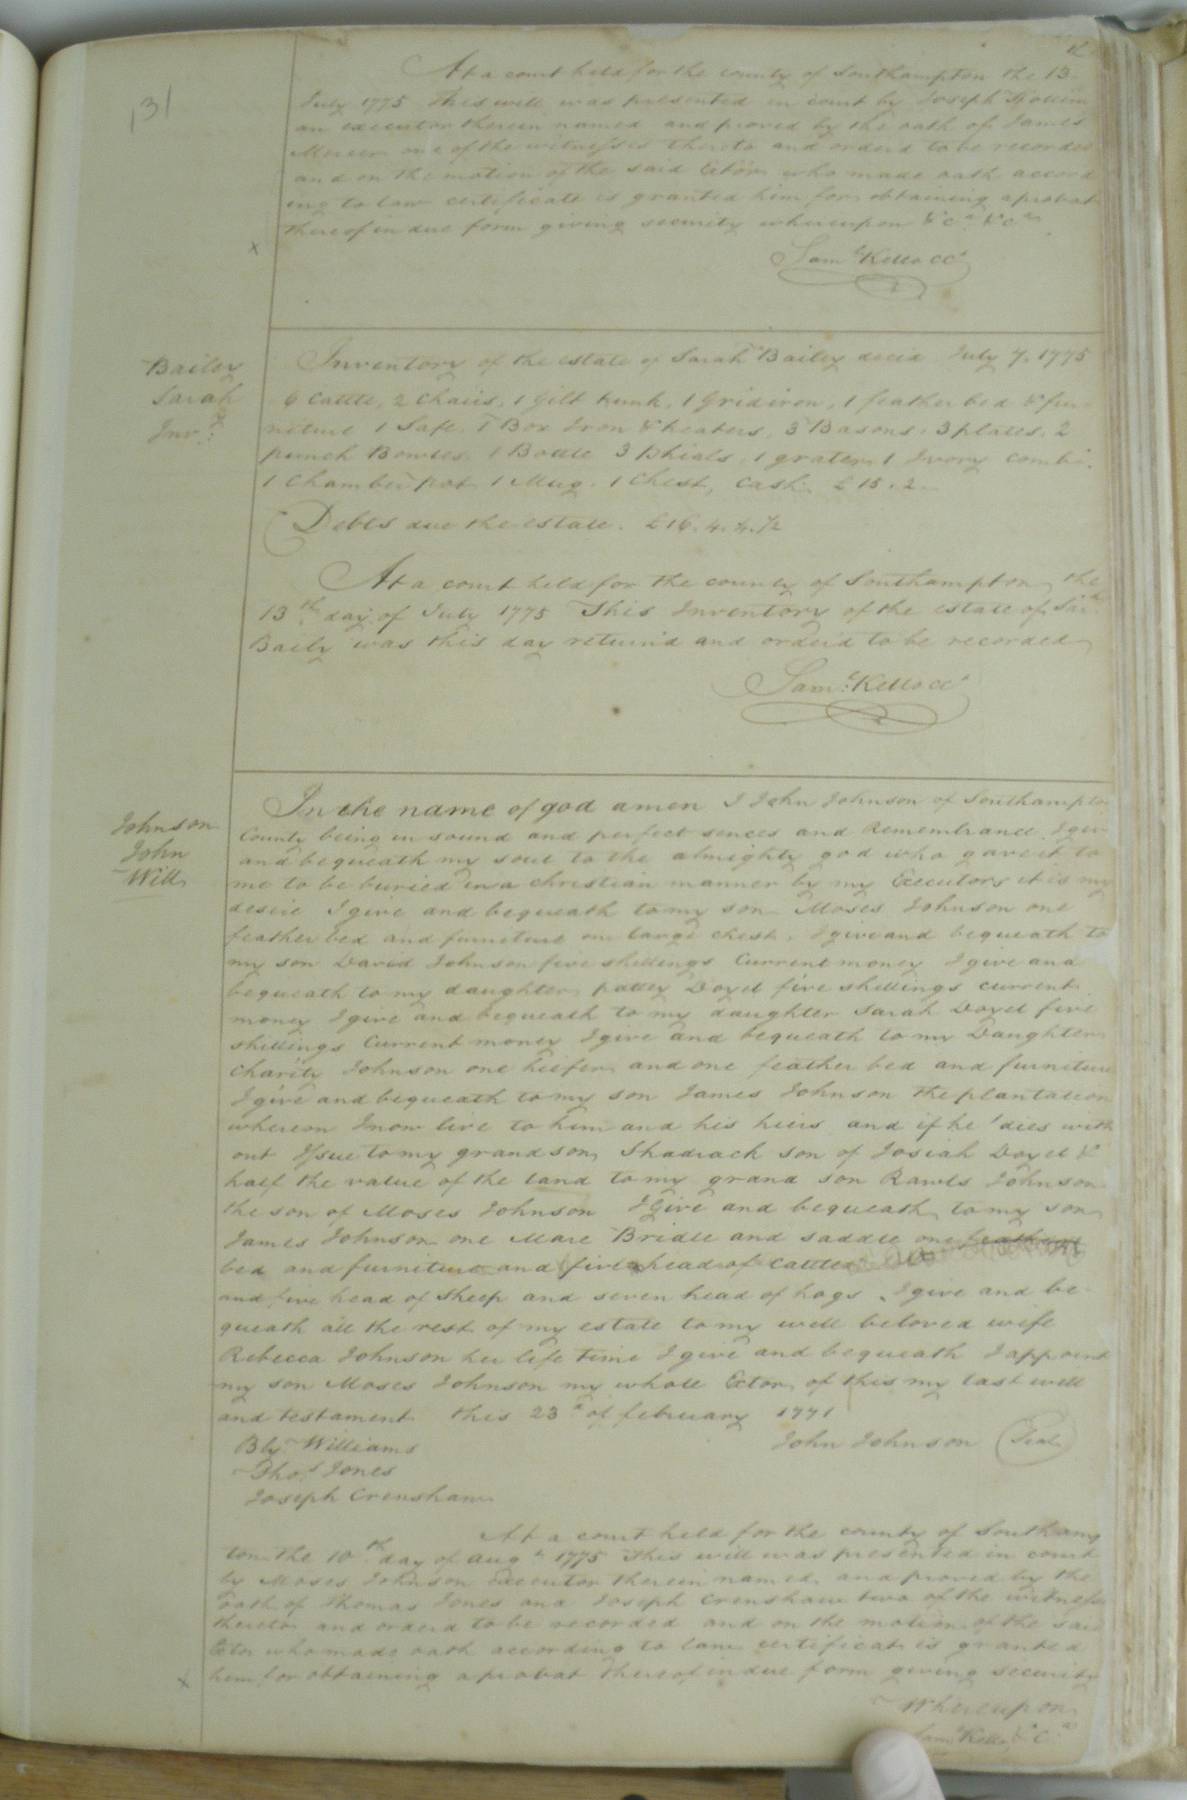 131
At a court held for the county of Southampton the 13
July 1775 This will was presented in court by Joseph
an executor therein named and proved by the oath of James
Mercer one of the witnesses thereto and orderd to be recorded
and on the motion of the said Extor who made oath accord
ing to law certificate is granted him for obtaining a probat
thereof in due form giving security whereupon &c.a &c.a
x
Saml Kello CC
Bailey
Sarah
Invy
Inventory of the estate of Sarah Bailey decd July 7. 1775
6 Cattle, 2 Chairs, 1 Gilt trunk, 1 Gridiron, 1 feather bed & fur
neture 1 Safe, 1 Box Iron & heaters, 3 Basons, 3 plates, 2
punch Bowles, 1 Bottle 3 Phials, 1 grater, 1 Ivory comb.
1 Chamber pot 1 Mug. 1 Chest, Cash £15.2
Debts due the estate. £16.4.4.1/2
At a court held for the county of Southampton the
13th day of July 1775 This Inventory of the estate of Sarh
Baily was this day returnd and orderd to be recorded
Saml Kello CC
Johnson
John
Will
In the name of god amen I John Johnson of Southampton
County being in sound and perfect sences and Remembrance I give
and bequeath my soul to the almighty god who gave it to
me to be buried in a christian manner by my Executors it is my
desire I give and bequeath to my son Moses Johnson one
feather bed and furniture one large chest. I give and bequeath to
my son David Johnson five shillings Current money I give and
bequeath to my daughter pattey Doyel five shillings current
money I give and bequeath to my daughter Sarah Doyel five
shillings Current money I give and bequeath to my Daughter
Charity Johnson one heifer and one feather bed and furniture
I give and bequeath to my son James Johnson the plantation
whereon I now live to him and his heirs and if he dies with
out Issue to my grandson Shadrach son of Josiah Doyel &
half the value of the land to my grand son Rawls Johnson
the son of Moses Johnson I Give and bequeath to my son
James Johnson one Mare Bridle and saddle one feather
bed and furniture and five head of Cattle
and five head of Sheep and seven head of hogs, I give and be
queath all the rest of my estate to my well beloved wife
Rebecca Johnson her life time I give and bequeath I appoint
my son Moses Johnson my whole Extor of this my last will
and testament this 23d of february 1771
Bly Williams
John Johnson (Seal)
Thos Jones
Joseph Crenshaw
At a court held for the county of Southamp
ton the 10th day of augt 1775 This will was presented in court
by Moses Johnson executor therein named and proved by the
oath of Thomas Jones and Joseph Crenshaw two of the witnesses
thereto and orderd to be recorded and on the motion of the said
Extor who made oath according to law certificate is granted
x
him for obtaining a probat thereof in due form giving security
Whereupon
Saml Kello CC